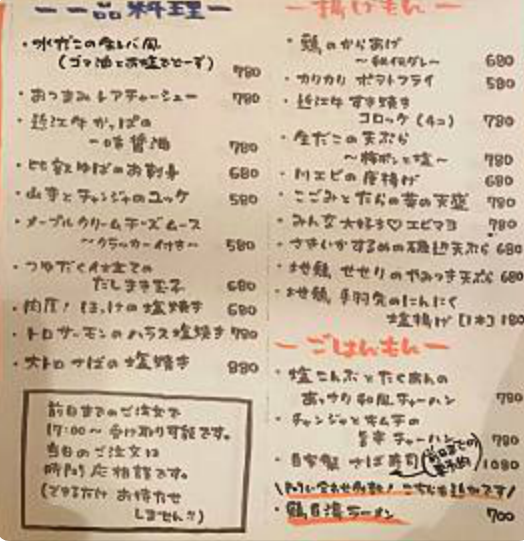 ー 一品料理 ー
・水だこの生レバ風
(ゴマ油とお塩でどーぞ) 780
・おつまみレアチャーシュー 780
・近江牛かっぱの
一味醤油 780
・比叡ゆばのお刺身 680
・山芋とチャンジャのユッケ 580
・メープルクリームチーズムース
〜クラッカー付き〜 580
・つゆだく仕立ての
だしまき玉子 680
・肉厚!ほっけの塩焼き 680
・トロサーモンのハラス塩焼き 780
・大トロさばの塩焼き 880
前日までのご注文で
17:00〜 受け取り可能です。
当日のご注文は
時間応相談です。
(できるだけお待たせ
しません!!)
ー 揚げもん ー
・鶏のからあげ
680
・カリカリ ポテトフライ 580
・近江牛すき焼き
コロッケ (4コ) 780
・生だこの天ぷら
〜梅ポンと塩〜 780
・川エビの唐揚げ 680
・こごみとたらの芽の天盛 780
・みんな大好き♡エビマヨ 780
・さきいかするめの磯辺天ぷら 680
・地鶏 せせりのやみつき天ぷら 680
・地鶏 手羽先のにんにく
塩揚げ [1本] 180
ー ごはんもん ー
・塩こんぶとたくあんの
あっさり和風チャーハン 780
・チャンジャとキムチの
旨辛チャーハン 780
・自家製 さば寿司 (前日までの要予約) 1080
\お問い合わせ多数!こちらも追加です/
・鶏白湯ラーメン 700